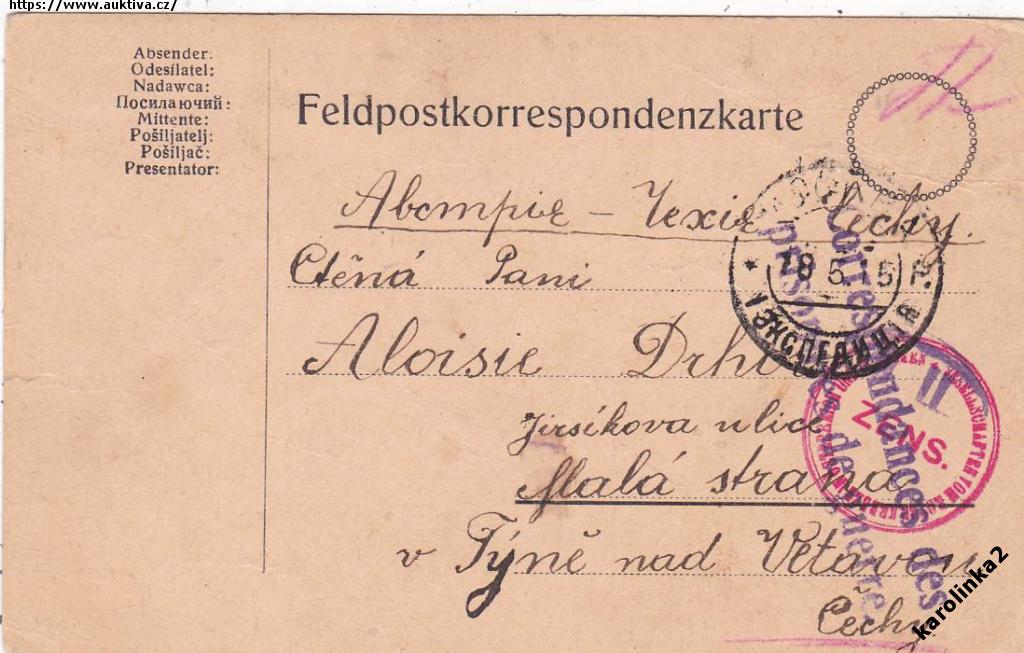 https://www.auktiva.cz/
Absender:
Odesílatel:
Nadawca:
Посилаючий:
Mittente:
Pošiljatelj:
Pošiljač:
Presentator:
Feldpostkorrespondenzkarte
Чехіе Čechy.
Ctěná Paní
Aloisie
Jirsíkova ulice
Malá strana
v Týně nad Vltavou
Čechy
18 5 15 Г.
ЭКСПЕДИЦІЯ
Correspondances des
prisonniers de guerre
II
ZENS.
karolinka2